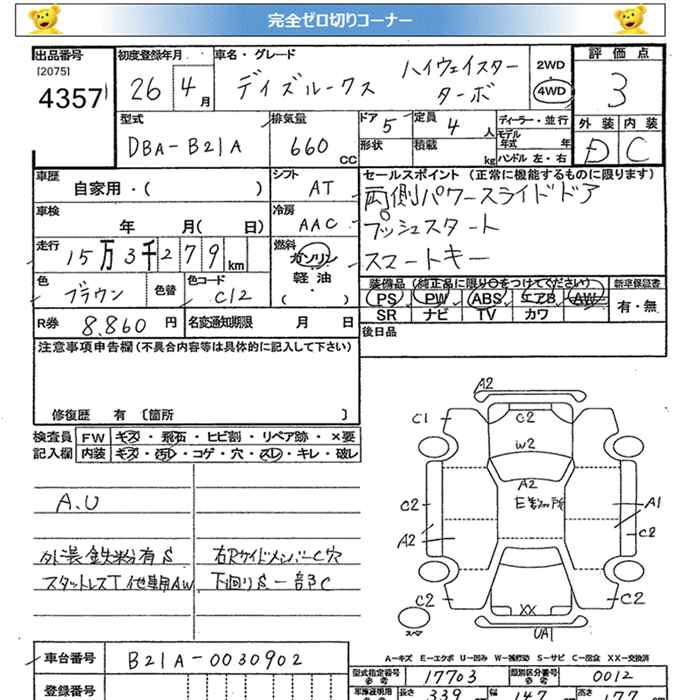 完全ゼロ切りコーナー
出品番号
[2075]
4357
初度登録年月
26 4月
車名・グレード
デイズルークス ハイウェイスター ターボ
2WD
4WD
評価点
3
外装 内装
D C
型式
DBA-B21A
排気量
660 CC
ドア 5
定員 4 人
形状
積載 kg
ディーラー・並行
モデル年式 年
ハンドル 左・右
車歴
自家用・( )
シフト
AT
セールスポイント (正常に機能するものに限ります)
両側パワースライドドア
プッシュスタート
スマートキー
車検
年 月( 日)
冷房
AAC
走行
15万3千279km
燃料
ガソリン
軽油
( )
色
ブラウン
色替
色コード
C12
装備品 (純正品に限り○をつけてください)
新車保証書
PS PW ABS エアB AW
有・無
SR ナビ TV カワ
R券 8,860 円
名変通知期限 月 日
後日品
注意事項申告欄(不具合内容等は具体的に記入して下さい)
修復歴 有 [箇所 ]
検査員 FW キズ・飛石・ヒビ割・リペア跡・×要
記入欄 内装 キズ・汚れ・コゲ・穴・スレ・キレ・破レ
A.U
外装鉄粉有S
スタッドレスT 他車用AW
右Rサイドメンバー C穴
下回りS 一部C
A2
C1
C2
W2
A2
C2
A2
A1
C2
C2
XX
C2
UA1
スペア
A-キズ E-エクボ U-凹み W-補修跡 S-サビ C-腐食 XX-交換済
車台番号
B21A-0030902
登録番号
型式指定番号 参考
17703
類別区分番号 参考
0012
長さ 339
幅 147
高さ 177